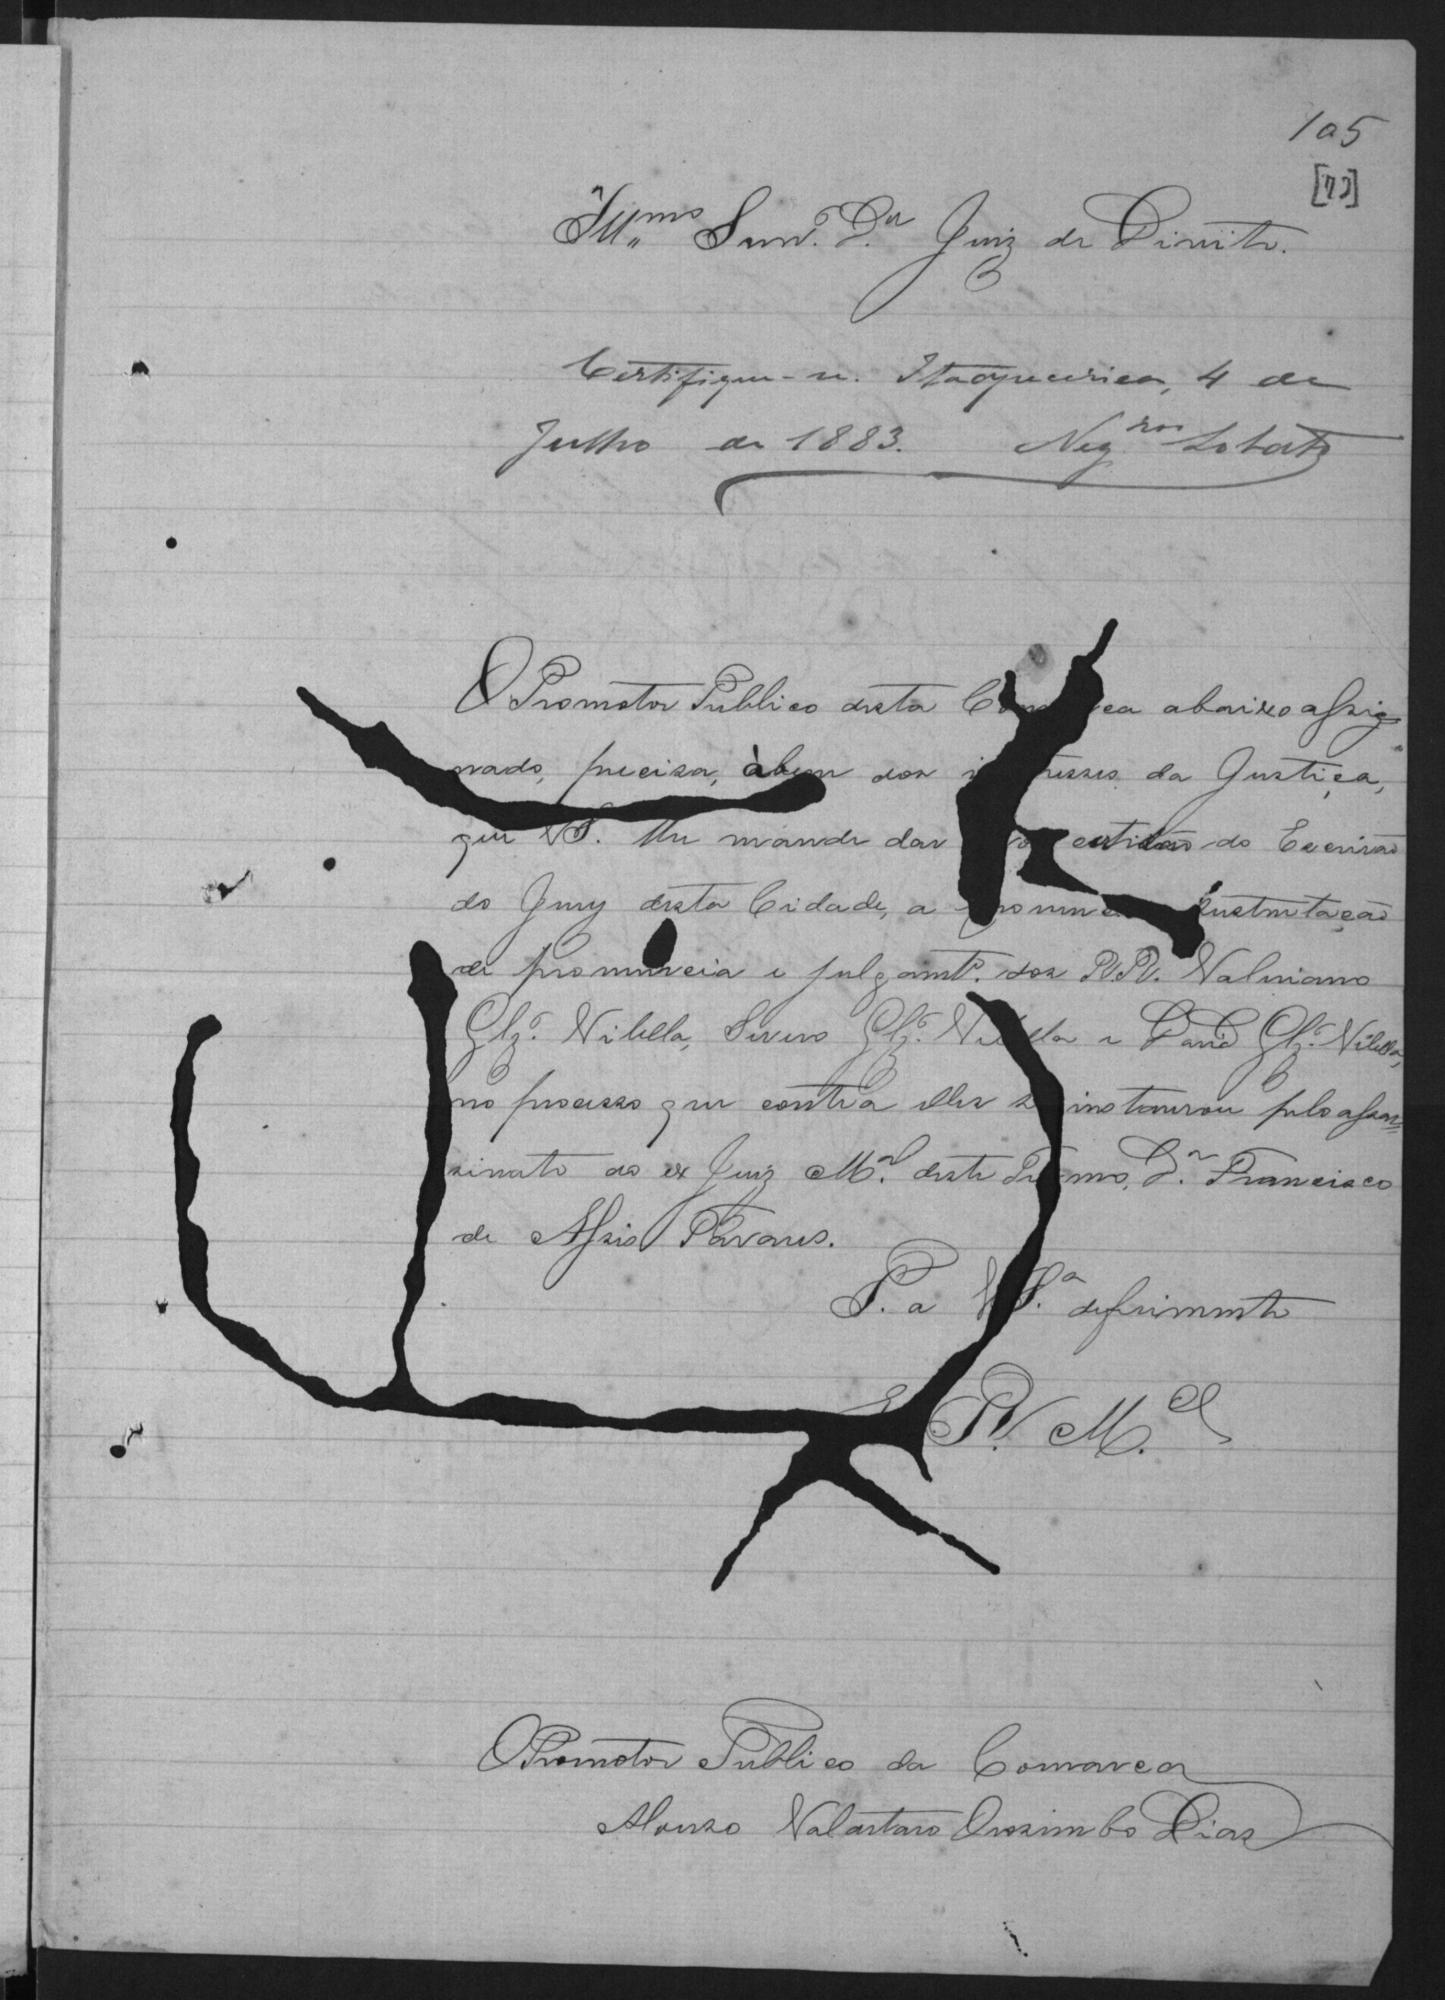 105
[73]
Illmo Senr. Dr. Juiz de Direito.
Certifique-se. Itapecerica, 4 de
Julho de 1883. Negros Lobato
O Promotor Publico desta Com ca abaixo assig
nado, precisa, àbem dos in resses da Justiça,
que VS. lhe mande dar certidão do Escrivão
do Jury desta Cidade, a pronuncia sustentação
de pronuncia e julgamto. dos RR. Valeriano
Glz. Vilella, Severo Glz. Vilella e David Glz. Vilella,
no processo que contra elles se instaurou pelo assas=
sinato do ex Juiz Mal. deste Termo, Dr. Francisco
de Assis Tavares.
P. a VSa. deferimento
E. R. Mce
O Promotor Publico da Comarca
Orozimbo Dias